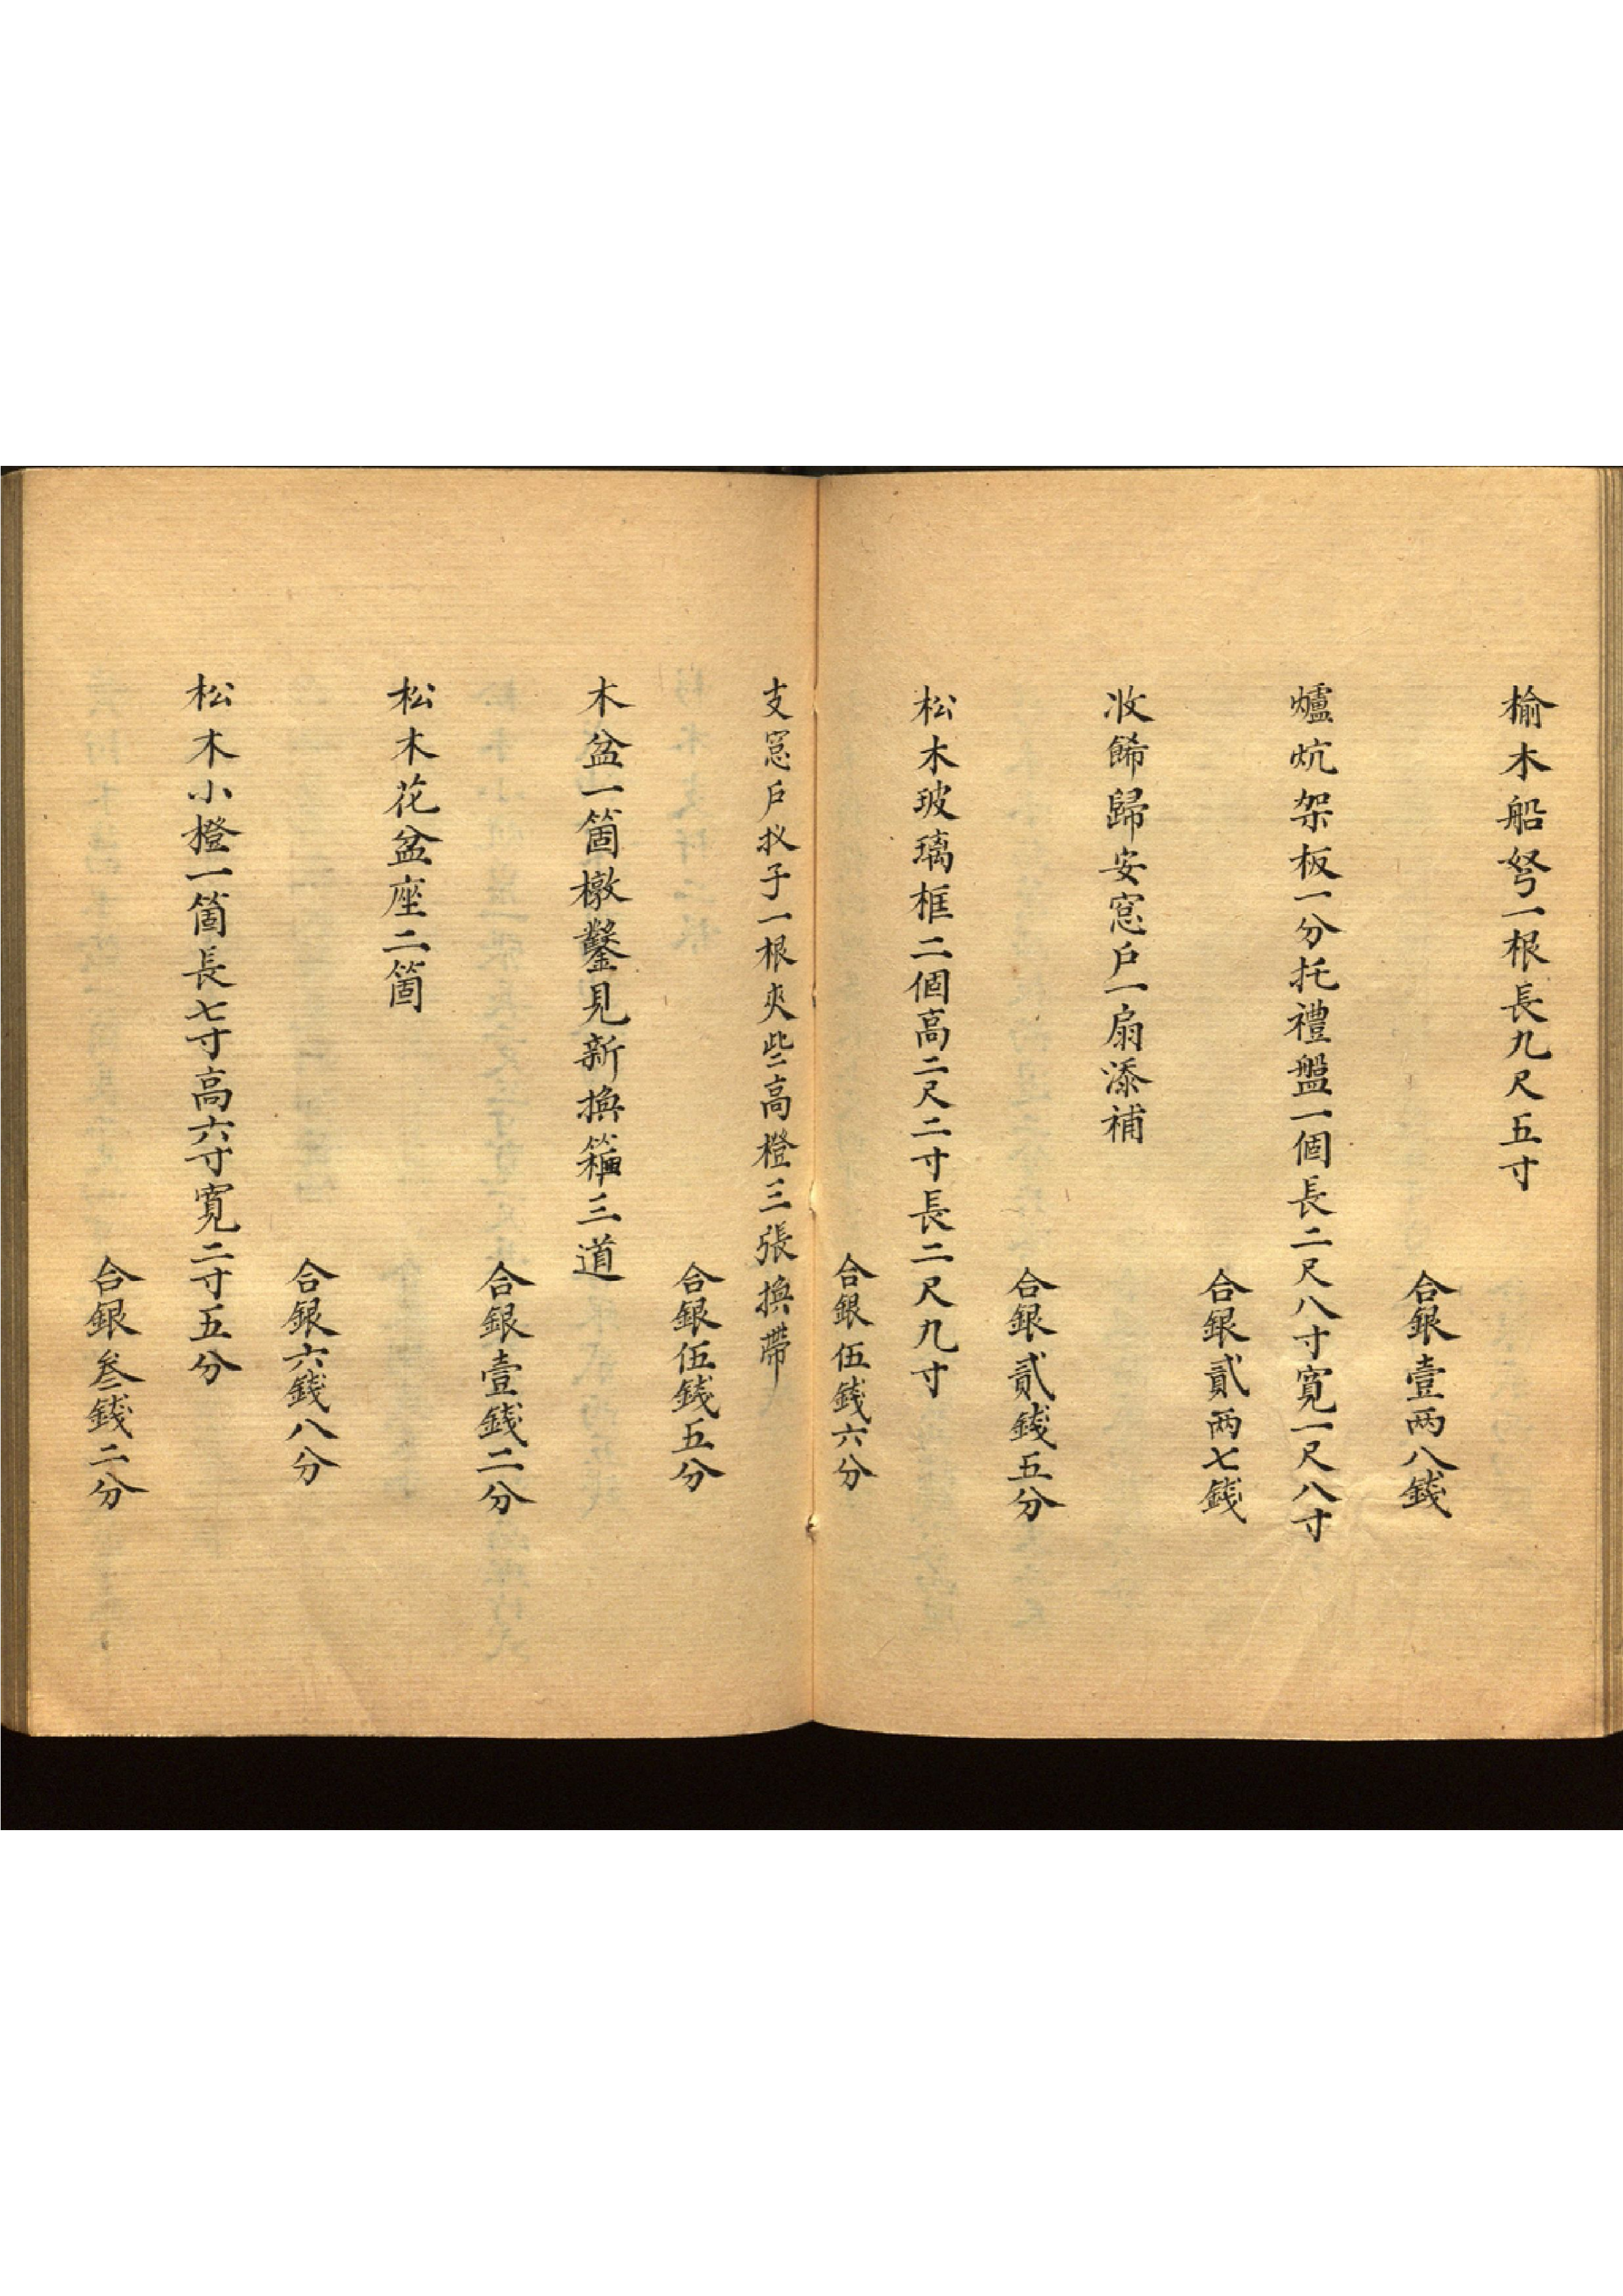 榆木船弩一根長九尺五寸
合銀壹两八錢
爐炕架板一分托禮盤一個長二尺八寸寬一尺八寸
合銀貳两七錢
收餙歸安窓户一扇添補
合銀貳錢五分
松木玻璃框二個高二尺二寸長二尺九寸
合銀伍錢六分
支窓户扠子一根夾些高橙三張换帶
合銀伍錢五分
木盆一箇檄鑿見新换箍三道
合銀壹錢二分
松木花盆座二箇
合銀六錢八分
松木小橙一箇長七寸高六寸寬二寸五分
合銀叁錢二分